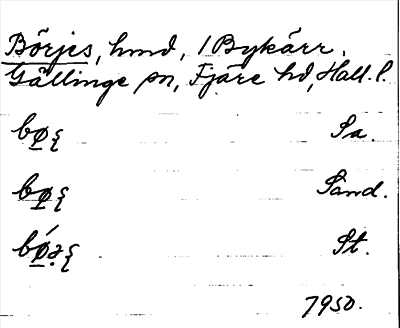 Börjes, hmd, 1 Bykärr.
Gällinge sn, Fjäre hd, Hall. l.
bø̲ξ Sa.
bø̲ξ Sand.
bǿ̲ə̣ξ St.
1950.